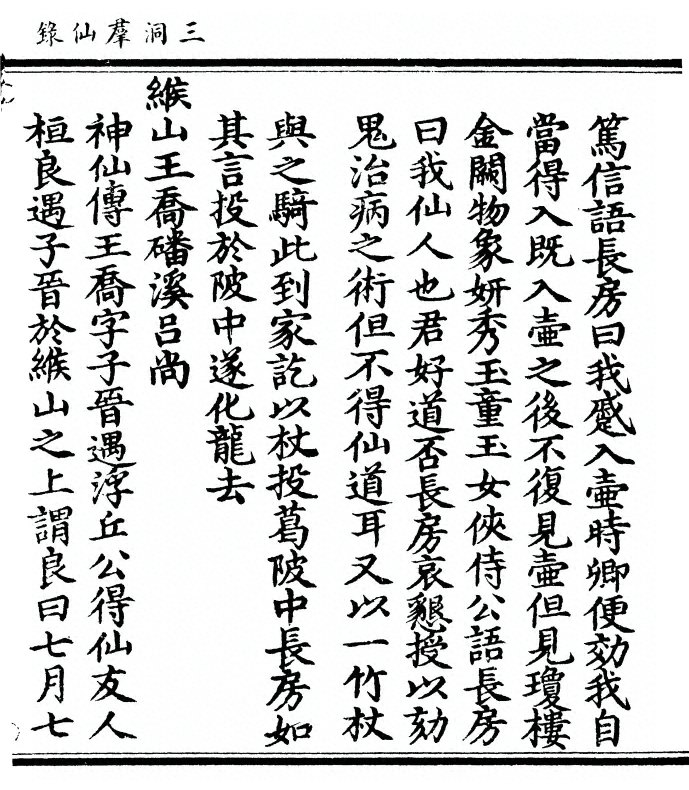 三洞羣仙錄
篤信語長房曰我蹙入壷時卿便効我自
當得入既入壷之後不復見壷但見瓊樓
金闕物象妍秀玉童玉女俠侍公語長房
曰我仙人也君好道否長房哀懇授以劾
鬼治病之術但不得仙道耳又以一竹杖
與之騎此到家訖以杖投葛陂中長房如
其言投於陂中遂化龍去
緱山王喬磻溪吕尚
神仙傳王喬字子晉遇浮丘公得仙友人
桓良遇子晉於緱山之上謂良曰七月七